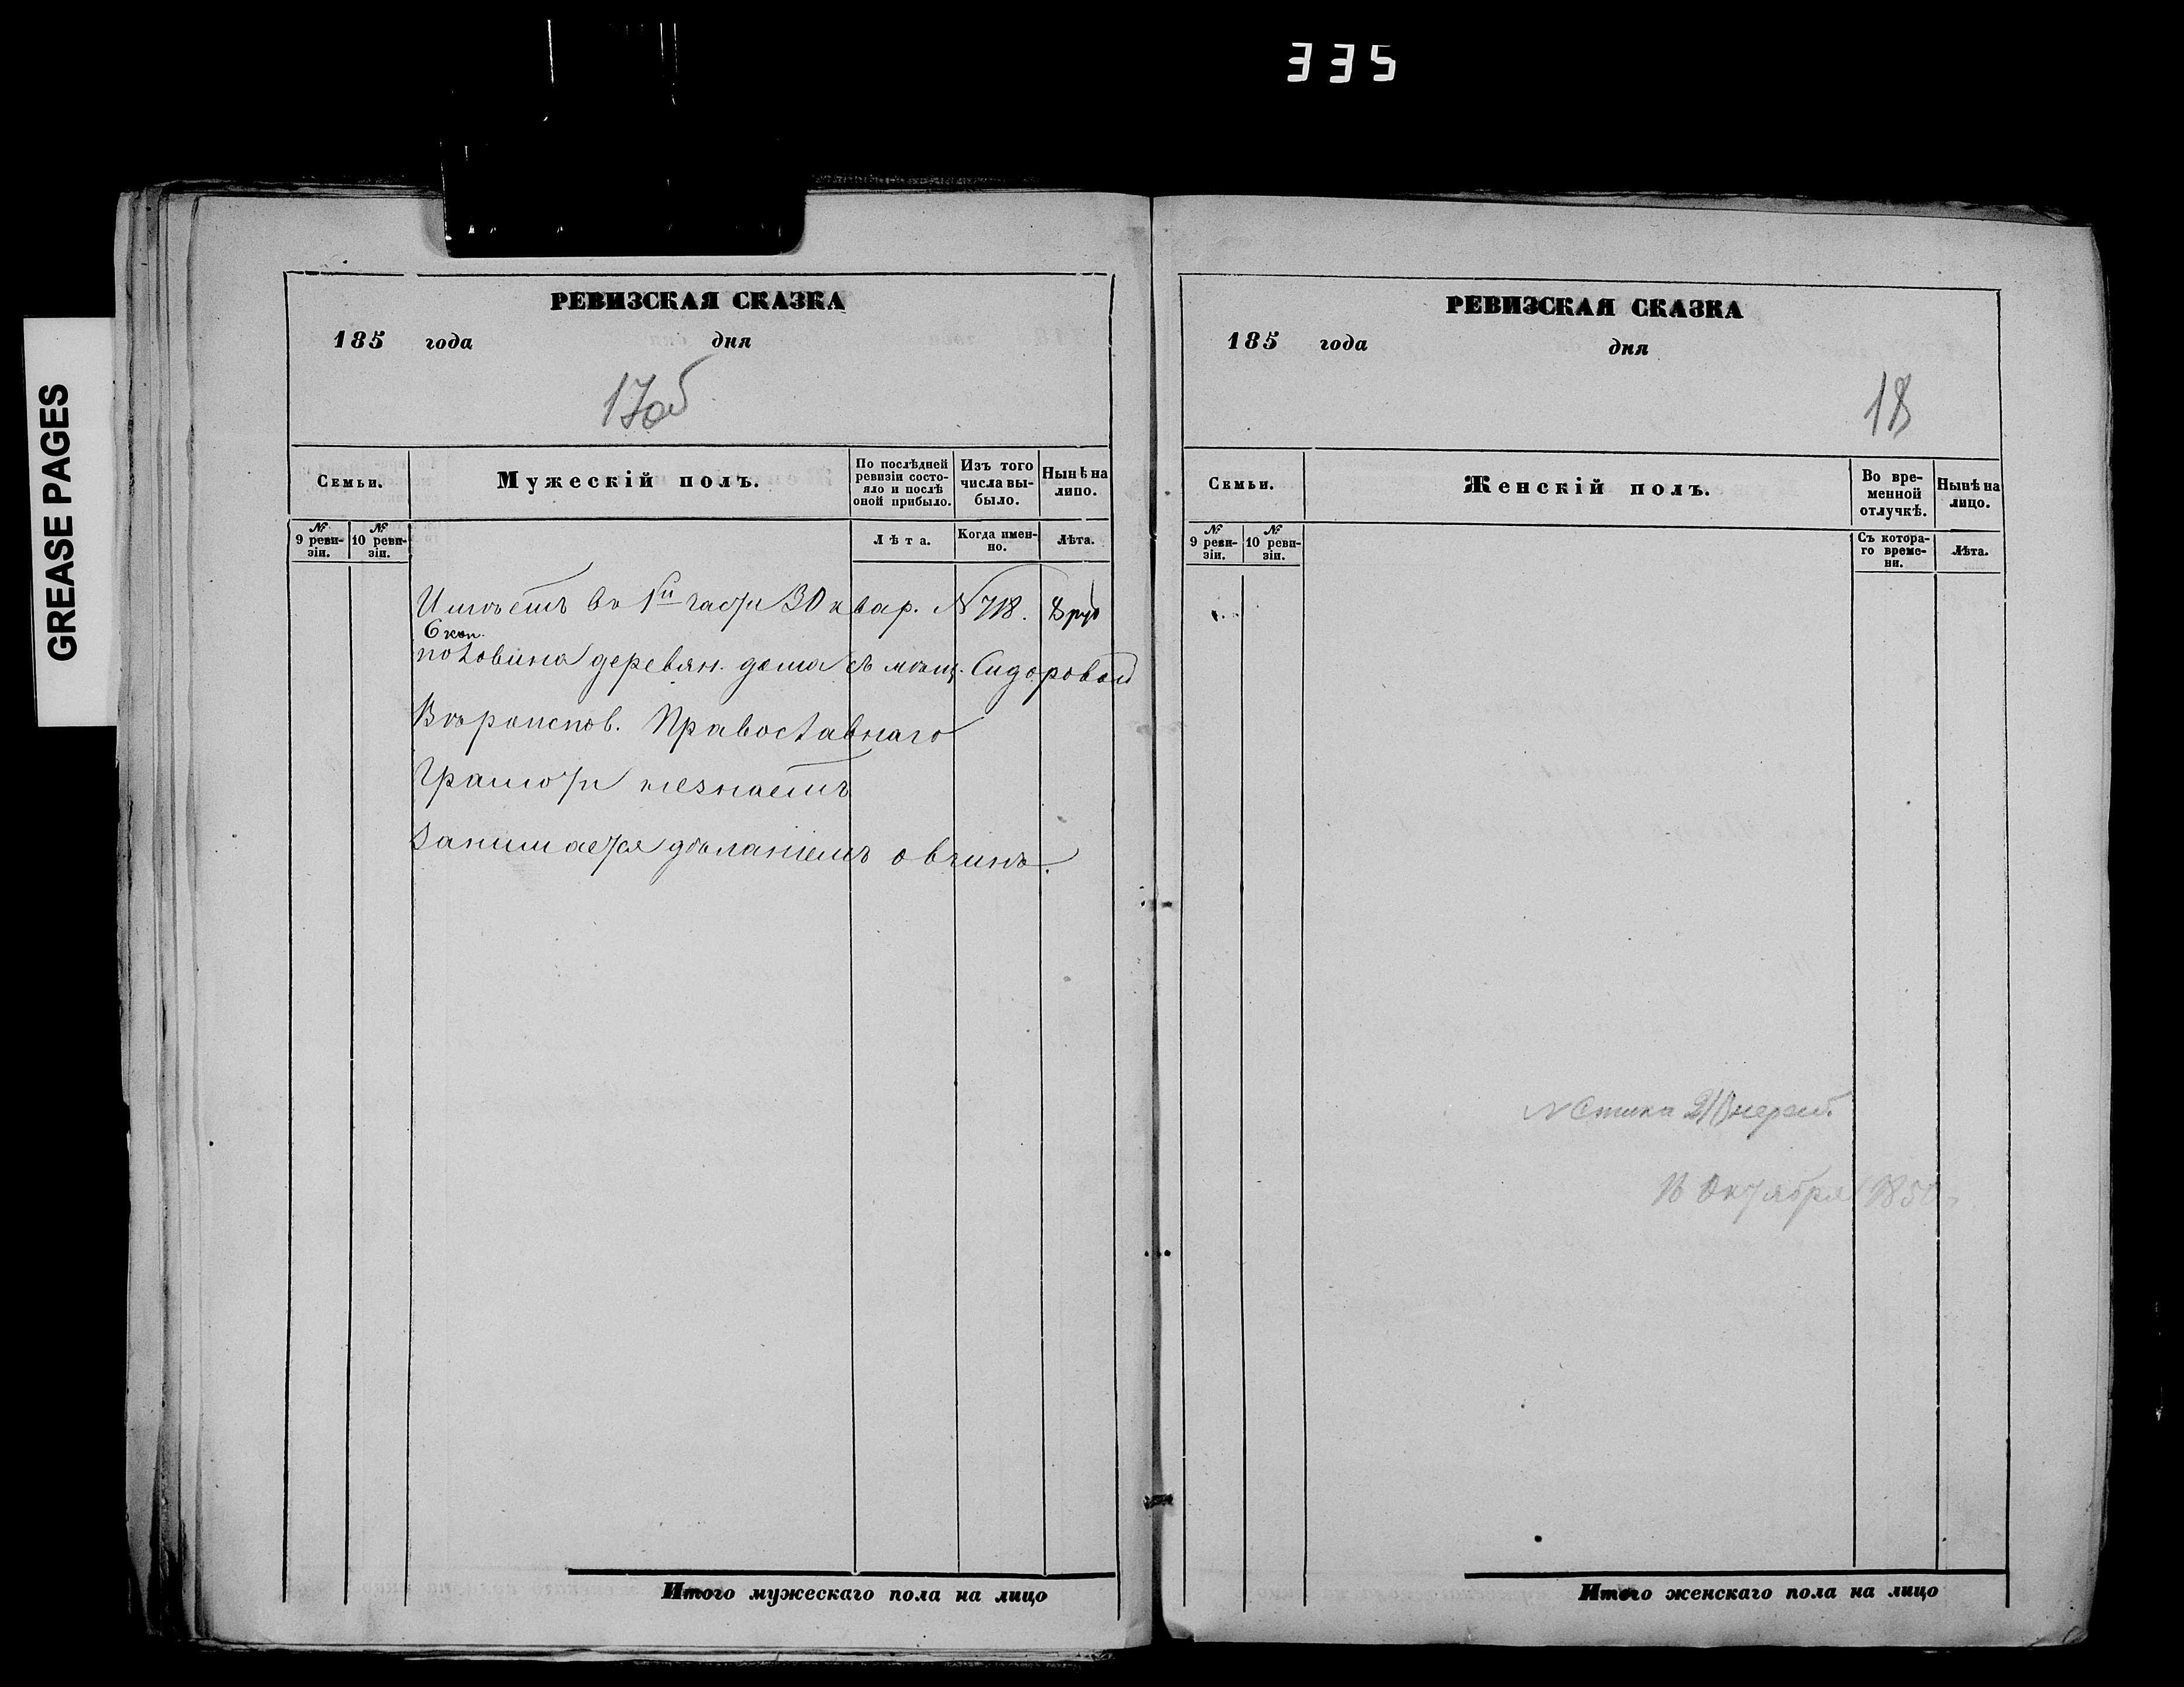 335
GREASE PAGES
РЕВИЗСКАЯ СКАЗКА
185 года дня
17об
Семьи.
Мужескій полъ.
По послѣдней ревизіи состояло и послѣ оной прибыло.
Изъ того числа выбыло.
Нынѣ на лицо.
№ 9 ревизіи.
№ 10 ревизіи.
Лѣта.
Когда именно.
Лѣта.
Имѣетъ въ 1й части 30 квар. № 718. 8 руб
6 коп.
половина деревян. дома съ мѣщ. Сидоровой
Вѣроиспов. Православнаго
Грамоти незнаетъ
Занимается дѣланіемъ овчинъ.
Итого мужескаго пола на лицо
РЕВИЗСКАЯ СКАЗКА
185 года дня
18
Семьи.
Женскій полъ.
Во временной отлучкѣ.
Нынѣ на лицо.
№ 9 ревизіи.
№ 10 ревизіи.
Съ котораго времени.
Лѣта.
16 Октября 185
Итого женскаго пола на лицо